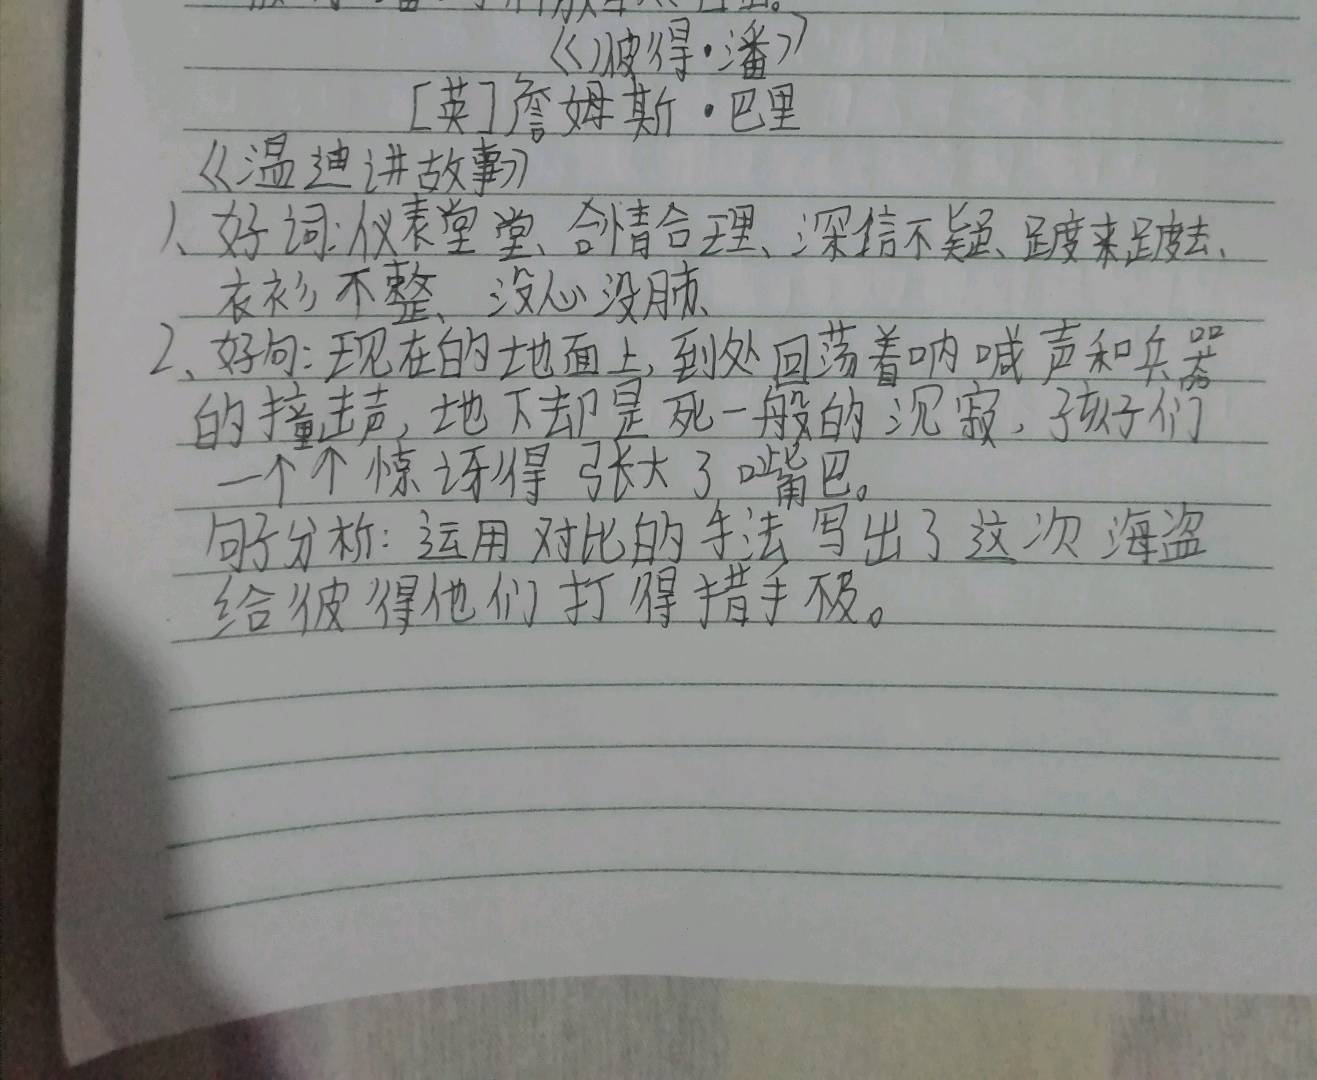 《彼得·潘》
[英]詹姆斯·巴里
《温迪讲故事》
1、好词:仪表堂堂、合情合理、深信不疑、踱来踱去、
衣衫不整、没心没肺、
2、好句:现在的地面上,到处回荡着呐喊声和兵器
的撞击声,地下却是死一般的沉寂,孩子们
一个个惊讶得张大了嘴巴。
句子分析:运用对比的手法写出了这次海盗
给彼得他们打得措手不及。